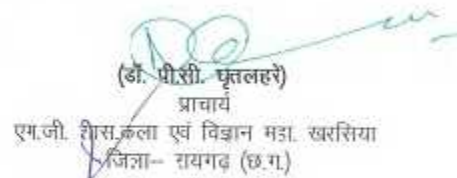 (डॉ. पी.सी. घृतलहरे)
प्राचार्य
एम.जी. शास.कला एवं विज्ञान मडा. खरसिया
जिला– रायगढ़ (छ.ग.)